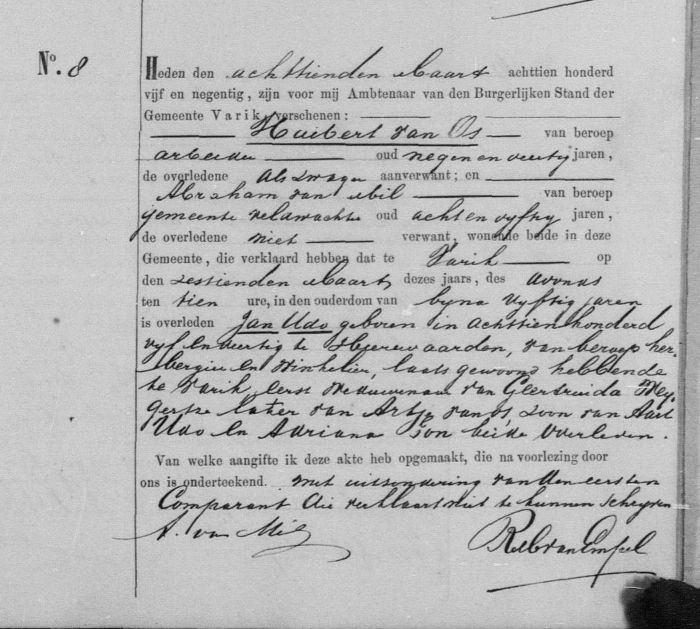 No. 8
Heden den achttienden Maart achttien honderd
vijf en negentig, zijn voor mij Ambtenaar van den Burgerlijken Stand der
Gemeente Varik, verschenen:
Huibert van Os van beroep
arbeider oud negen en veertig jaren,
de overledene als zwager aanverwant; en
Abraham van Mil van beroep
gemeente veldwachter oud acht en vyftig jaren,
de overledene niet verwant, wonende beide in deze
Gemeente, die verklaard hebben dat te Varik op
den zestienden Maart dezes jaars, des avonds
ten tien ure, in den ouderdom van byna vyftig jaren
is overleden Jan Udo geboren in achttienhonderd
vyf en veertig te Heerewaarden, van beroep her-
bergier en winkelier, laatst gewoond hebbende
te Varik, eerst weduwenaar van Geertruida
later van van Os zoon van Aart
Udo en Adriana beide overleden.
Van welke aangifte ik deze akte heb opgemaakt, die na voorlezing door
ons is onderteekend. met uitzondering van den eersten
Comparant die verklaart niet te kunnen schryven
A. van Mil
van Empel